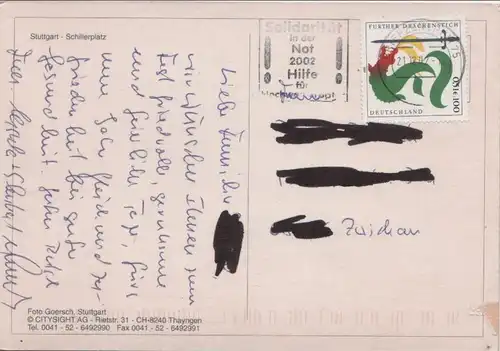 Stuttgart - Schillerplatz
Solidarität
in der
Not
2002
Hilfe
für
FURTHER DRACHENSTICH
DEUTSCHLAND
Liebe Familie
wir wünschen Ihnen zum
Fest friedvolle, geruhsame
und feierliche Tage, fürs
neue Jahr Glück und Zu-
friedenheit bei guter
Gesundheit.
Zwickau
Foto: Goersch, Stuttgart
© CITYSIGHT AG - Rietstr. 31 - CH-8240 Thayngen
Tel. 0041 - 52 - 6492990 Fax 0041 - 52 - 6492991